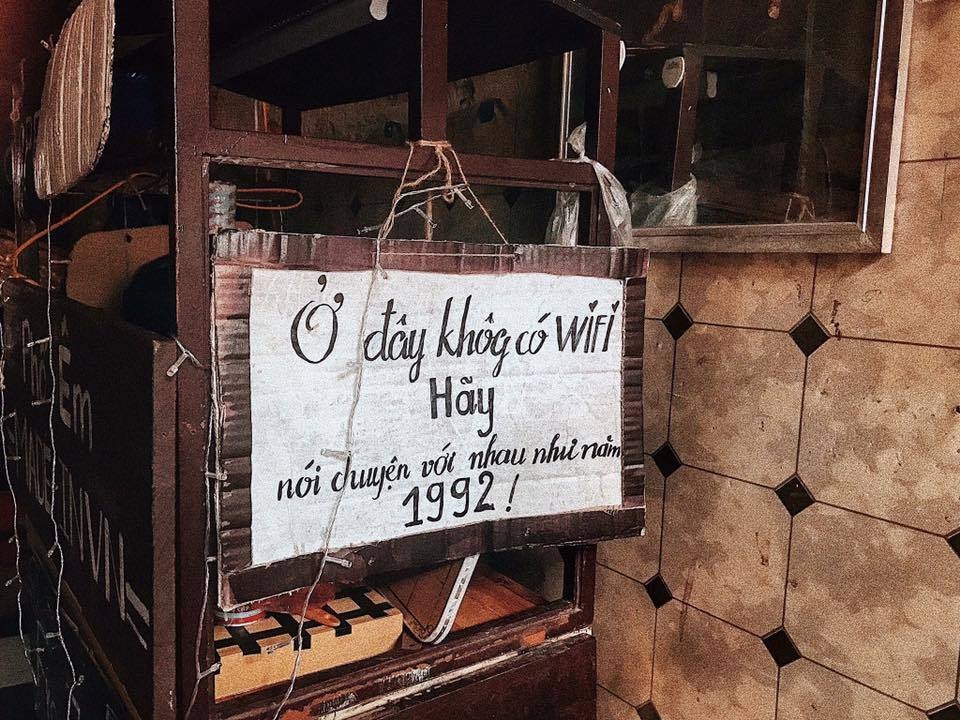 Ở đây khôg có WiFi
Hãy
nói chuyện với nhau như năm
1992 !
Êm